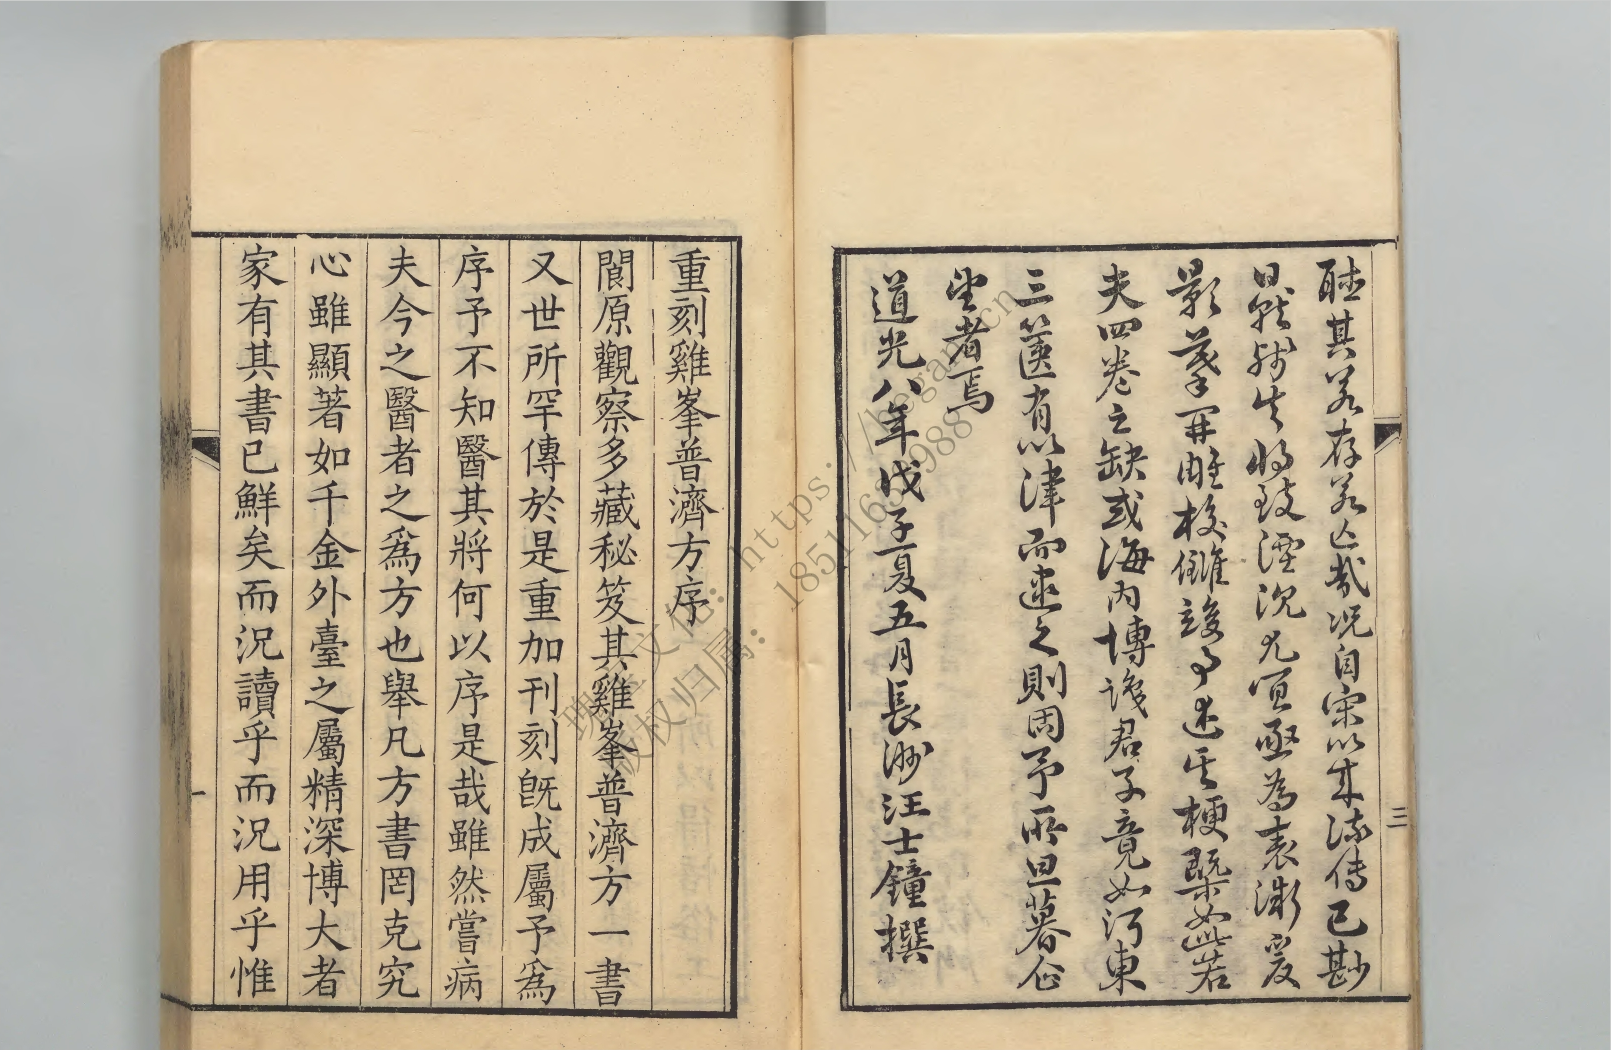 聽其若存若亡哉況自宋以來流傳已尠
日就殘失將致湮沉尤宜亟為表微爰
影摹開雕校讎竣事述其梗槩如此若
夫四卷之缺或海内博識君子竟如河東
三篋有以津而逮之則固予所旦暮企
望者焉
道光八年戊子夏五月長沙汪士鐘撰
三
重刻雞峯普濟方序
閬原觀察多藏秘笈其雞峯普濟方一書
又世所罕傳於是重加刊刻旣成屬予爲
序予不知醫其將何以序是哉雖然嘗病
夫今之醫者之爲方也舉凡方書罔克究
心雖顯著如千金外臺之屬精深博大者
家有其書已鮮矣而況讀乎而況用乎惟
一